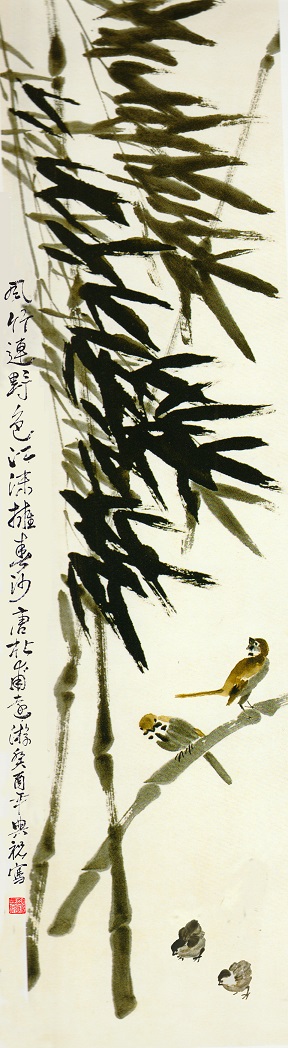 風竹連野色江沫擁春沙唐杜甫遠游癸酉年興祝寫